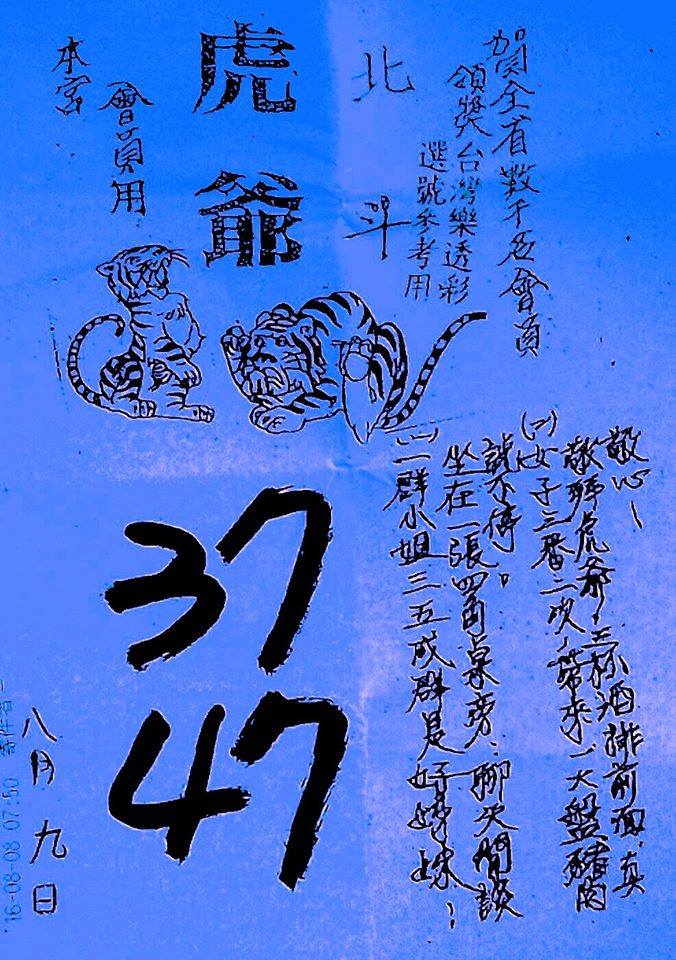 賀全省數千名會員
領獎台灣樂透彩
選號參考用
北斗
虎爺
會員用
本宮
(一)一群小姐三五成群是好姊妹,
坐在一張四角桌旁,聊天閒談
說不停。
(二)女子三番二次,帶來一大盤豬肉
敬拜虎爺,三杯酒排前面,真
敬心~
37
47
八月九日
'16-08-08 07:50 寄件者-